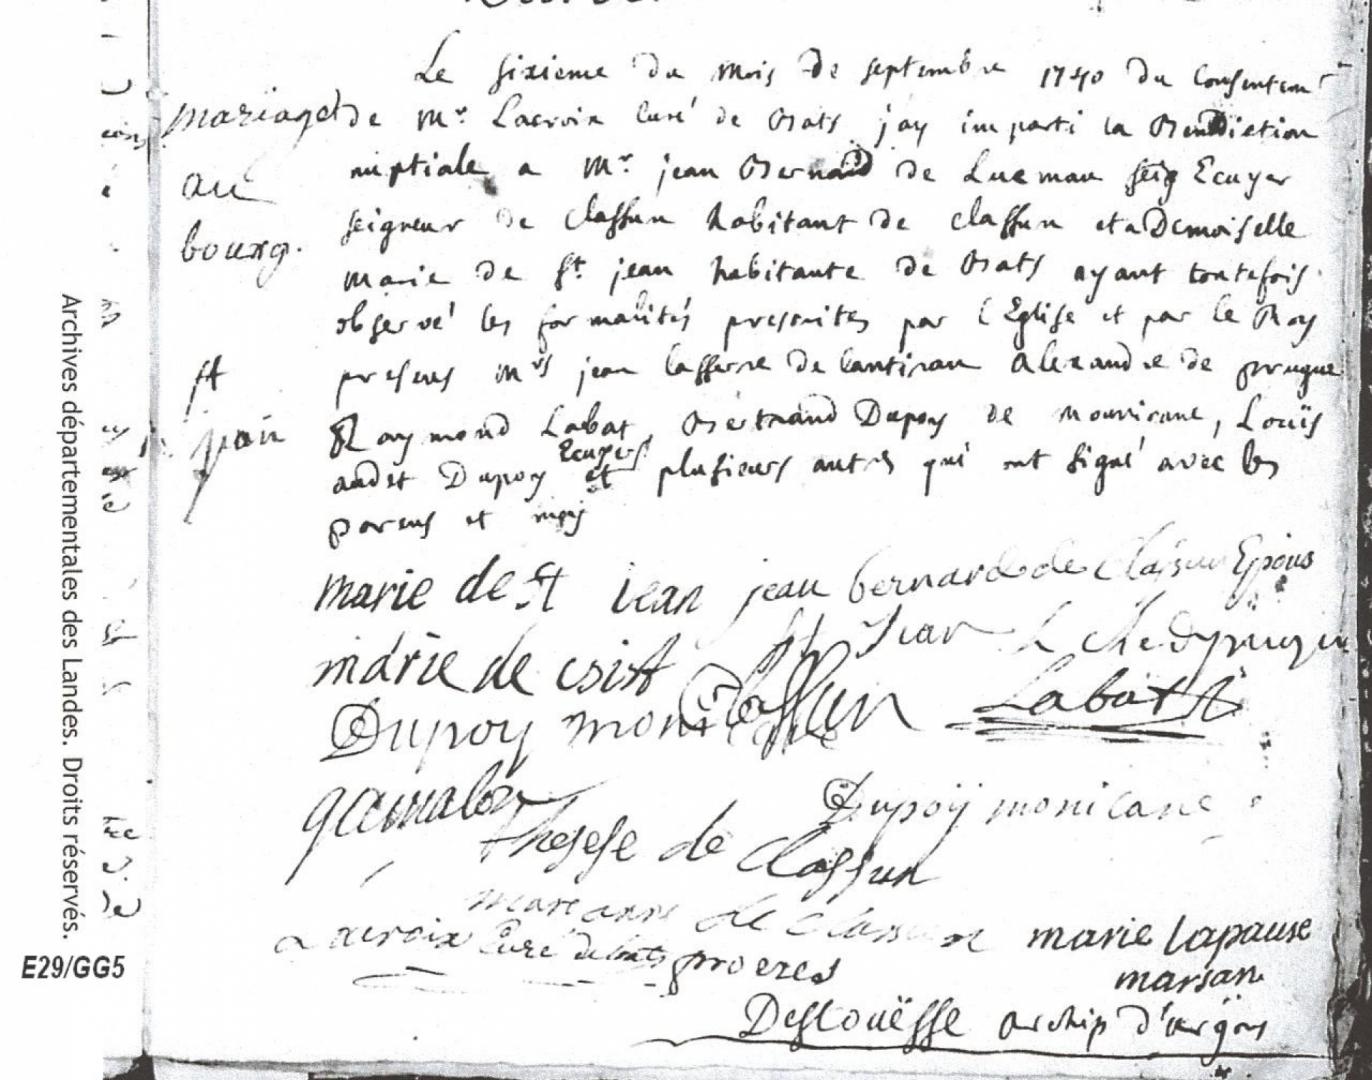 Le sixieme du mois de septembre 1740 du Consentemt
mariage de Mr. Lacroix Curé de Bats jay imparti la Benediction
nuptiale a Mr. jean Bernard de Lucmau seig Ecuyer
au
seigneur de Classun habitant de classun et a Demoiselle
bourg.
marie de St. jean habitante de Bats ayant toutefois
observé les formalités prescrites par l'Eglise et par le Roy
presens Mrs jean lasserre de lantiran Alexandre de prugue
st
jean
Raymond Labat, Bertrand Dupoy de monicane, Louïs
audet Dupoy Ecuyers et plusieurs autres qui ont signé avec les
parens et moy
marie de st iean jean bernard de Classun Epous
marie de st jean
Classun Labatt
Dupoy monicane
Dupoÿ monicane
Therese de Classun
marianne de Classun marie lapause
Lacroix Curé de bats proeres marsan
Deslouësse archip d'urgons
Archives départementales des Landes. Droits réservés.
E29/GG5